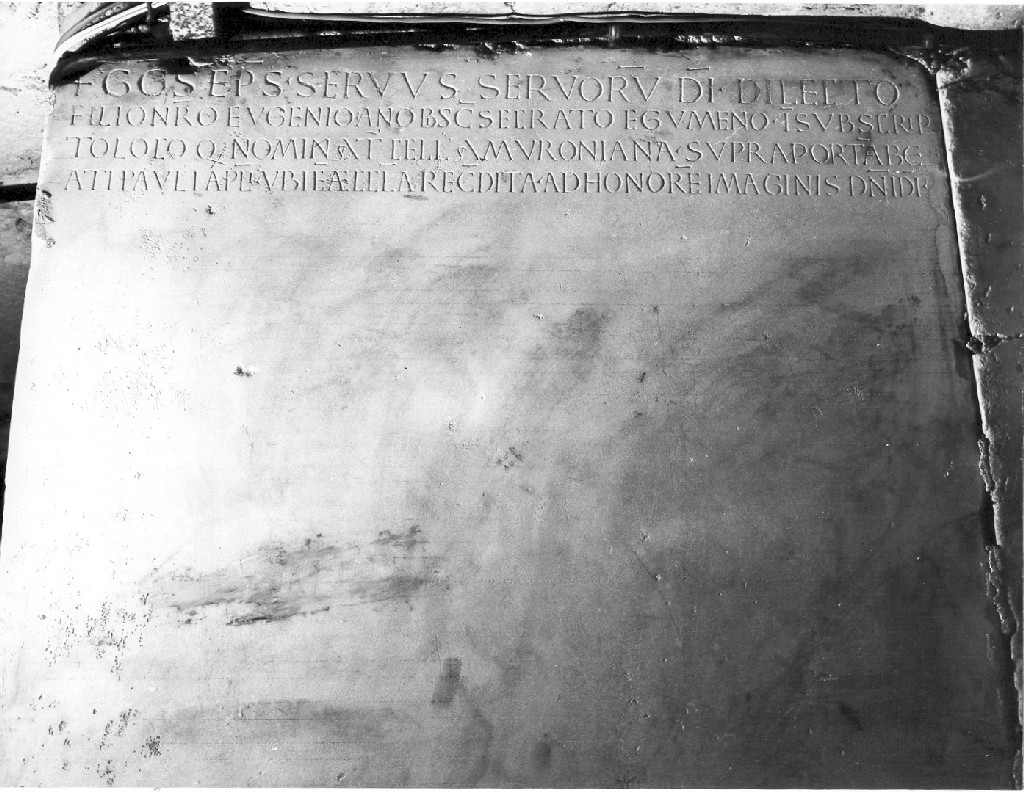 + GG S EPS · SERVVS SERVORV DI · DILECTO
FILIO NRO EVGENIO ANOB S CSECRATO EGVMENO · I SVBSCRIP
TO LOCO Q NOMINAT CELLA MVRONIANA · SVPRA PORTA BG
ATI PAVLI APL · VBI E ÆCCLA RECDITA AD HONORE IMAGINIS DNI DI